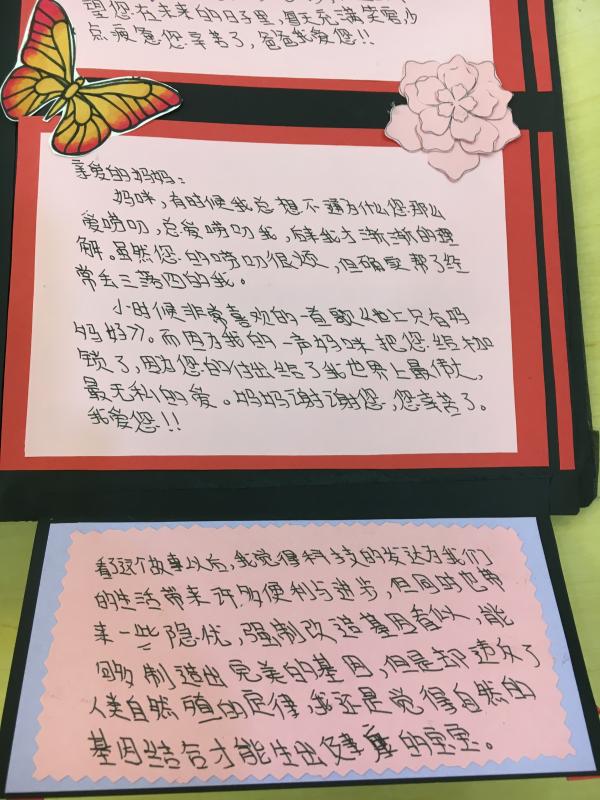 望您在未来的日子里,夏天充满笑容少
点疲惫您辛苦了,爸爸我爱您!!
亲爱的妈妈:
妈咪,有时候我总想不通为什么您那么
爱唠叨,总爱唠叨我,后来我才渐渐的理
解。虽然您的唠叨很烦,但确实帮了经
常丢三落四的我。
小时候非常喜欢的一首歌《世上只有妈
妈好》。而因为我的一声妈咪把您给加
锁了,因为您的付出给了我世界上最伟大,
最无私的爱。妈妈谢谢您,您辛苦了。
我爱您!!
看了这个故事以后,我觉得科技的发达为我们
的生活带来许多便利与进步,但同时也带
来一些隐忧,强制改造基因看似,能
够制造出完美的基因,但是却违反了
人类自然殖的定律,我还是觉得自然的
基因结合才能生出健康的宝宝。